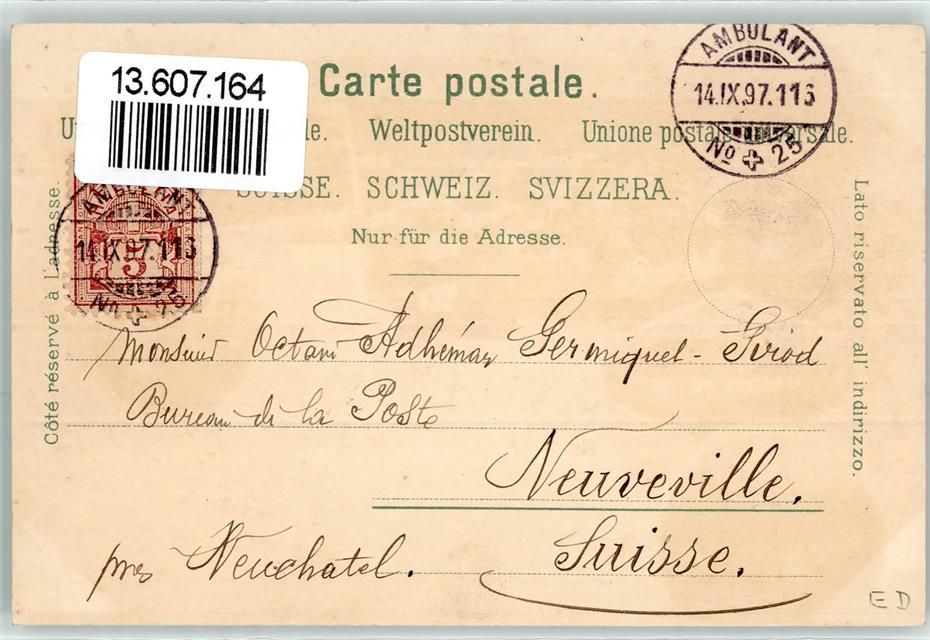 13.607.164
Carte postale.
AMBULANT
14.IX.97.116
No 25
Weltpostverein. Unione postale
SUISSE. SCHWEIZ. SVIZZERA.
Nur für die Adresse.
AMBULANT
14.IX.97.116
No 25
5
Côté réservé à l'adresse.
Lato riservato all' indirizzo.
Monsieur Octave Adhémar Germiquet-Sirod
Bureau de la Poste
Neuveville.
près Neuchatel. Suisse.
ED